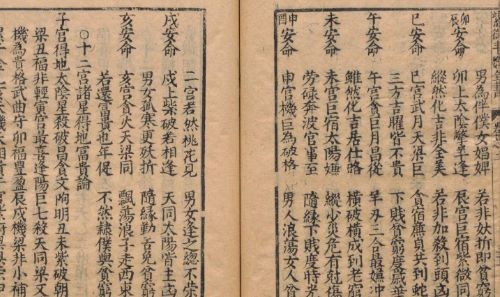 男為伴僕女娼婢 若非妖折即貧窮
卯辰安命 卯上太陰擎羊逢 辰宮巨宿紫微同
縱然化吉非全美 若非加殺到頭凶
巳安命 巳宮武月天梁巨 貪宿廉貞共到蛇
三方吉曜皆不貴 下賤貧窮度歲華
午安命 午宮貪巨月昌從 羊刃三合最嫌冲
雖然化吉居仕路 橫破橫成到老窮
未安命 未宮巨宿太陽嫌 縱少災危有尅傷
勞碌奔波官事至 隨緣下賤度時光
申酉安命 申宮機巨為破格 男人浪蕩女人貧
二宮若然桃花見 男女逢之總不榮
戌安命 戌上紫破若相逢 天同太陽皆主凶
男女孤寒更妖折 隨緣勤苦免貧窮
亥安命 亥宮貪火天梁同 飄蕩浪子走西東
若還富貴也年促 不然隸僕與貧窮
○十二宮諸星得地富貴論
子宮得地太陰星殺破昌貪文曲明丑未紫破朝
梁丑福非輕寅宮最喜逢陽巨七殺天同梁又
機為貴格武曲守卯福豐盈辰戌機梁非小補